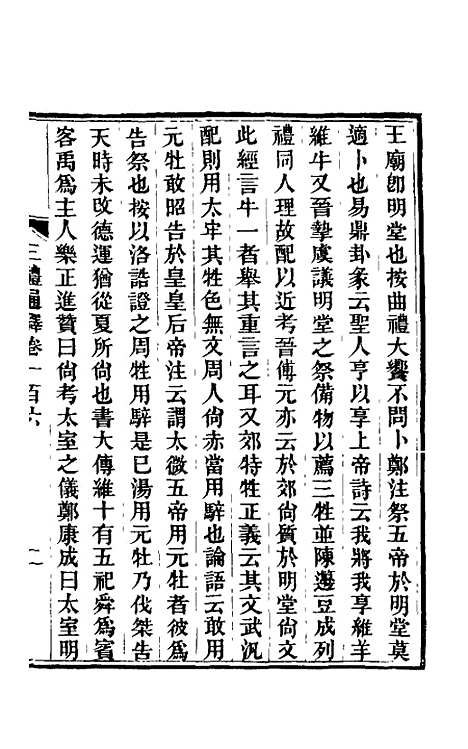 王廟卽明堂也按曲禮大饗不問卜鄭注祭五帝於明堂莫
適卜也易鼎卦彖云聖人亨以享上帝詩云我將我享維羊
維牛又晉摯虞議明堂之祭備物以薦三牲並陳籩豆成列
禮同人理故配以近考晉傅元亦云於郊尙質於明堂尙文
此經言牛一者舉其重言之耳又郊特牲正義云其文武汎
配則用太牢其牲色無文周人尙赤當用騂也論語云敢用
元牡敢昭告於皇皇后帝注云謂太微五帝用元牡者彼爲
告祭也按以洛誥證之周牲用騂是已湯用元牡乃伐桀告
天時未改德運猶從夏所尙也書大傳維十有五祀舜爲賓
客禹爲主人樂正進贊曰尙考太室之儀鄭康成曰太室明
三禮通釋卷一百六